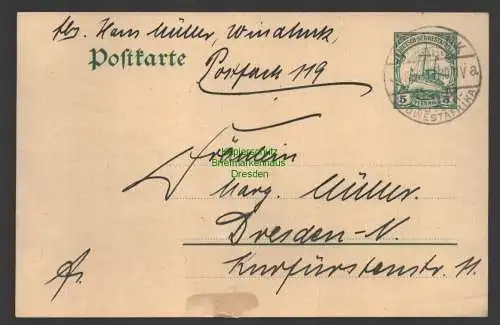 Abs. Hans Müller, Windhuk,
Postkarte
Postfach 119
DEUTSCH-SÜDWESTAFRIKA
5 5
PFENNIG
SÜDWESTAFRIKA
Fräulein
Kopierschutz
Briefmarkenhaus
Dresden
Marg. Müller.
Dresden-N.
Kurfürstenstr. 11.